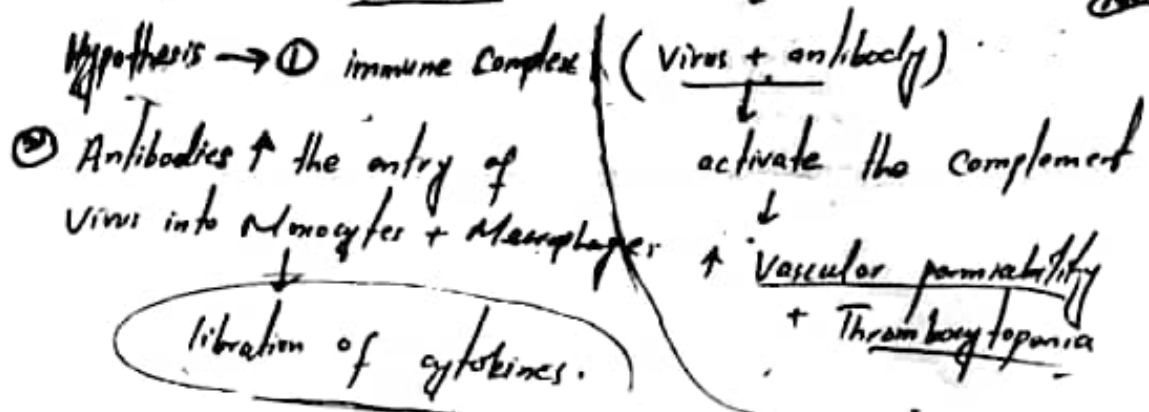 Hypothesis → ① immune Complex ( Virus + antibody)
↓
activate the complement
↓
↑ Vascular permiability
+ Thrombocytopenia
② Antibodies ↑ the entry of
Virus into Monocytes + Macrophages
↓
libration of cytokines.